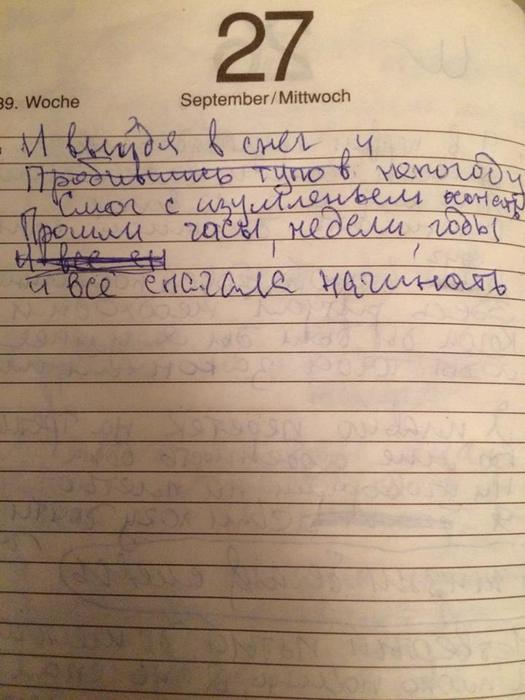 27
39. Woche
September/Mittwoch
И выйдя в снег и
Пробившись тупо в непогоду
Смог с изумленьем осознать
Прошли часы, недели, годы
и все сначала начинать